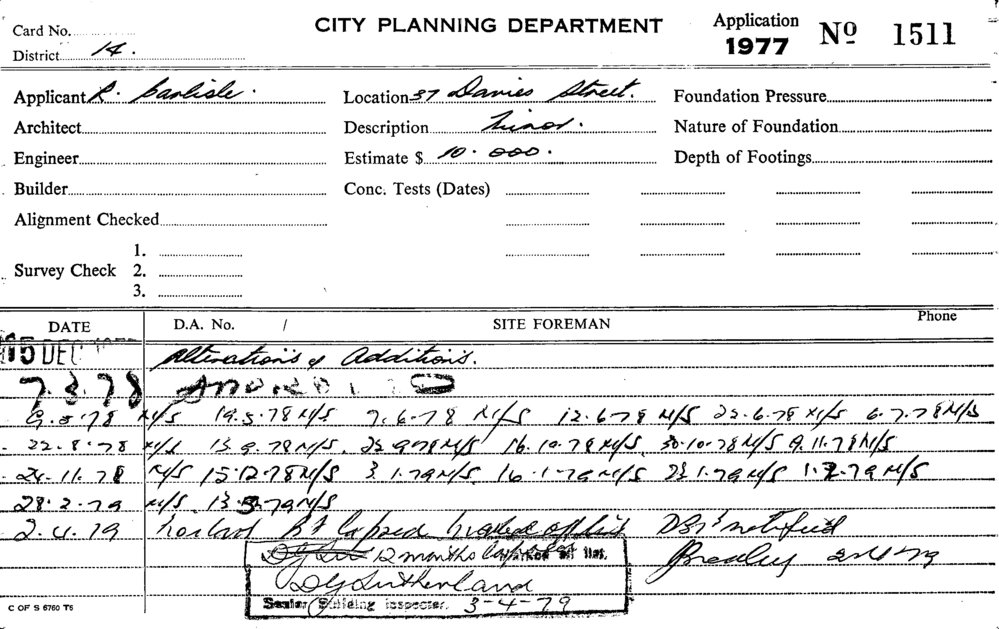 Card No.
CITY PLANNING DEPARTMENT
Application 1977 Nº 1511
District 14.
Applicant R. Carlisle. Location 37 Davies Street. Foundation Pressure
Architect Description Minor. Nature of Foundation
Engineer Estimate $ 10.000. Depth of Footings
Builder Conc. Tests (Dates)
Alignment Checked
1.
Survey Check 2.
3.
DATE D.A. No. / SITE FOREMAN Phone
15 DEC 1977 Alterations & Additions.
7.3.78
9.5.78 N/S 19.5.78 N/S 7.6.78 N/S 12.6.78 N/S 22.6.78 N/S 6.7.78 N/S
22.8.78 N/S 13.9.78 N/S. 22.9.78 N/S 16.10.78 N/S. 30.10.78 N/S 9.11.78 N/S.
24.11.78 N/S 15.12.78 N/S 3.1.79 N/S. 16.1.79 N/S 23.1.79 N/S 1.2.79 N/S
28.2.79 N/S. 13.3.79 N/S.
2.4.79 lapsed notified
12 months Marked off list.
Bradley 2/4/79
D G Sutherland
Senior Building Inspector. 3-4-79
C OF S 6760 T6